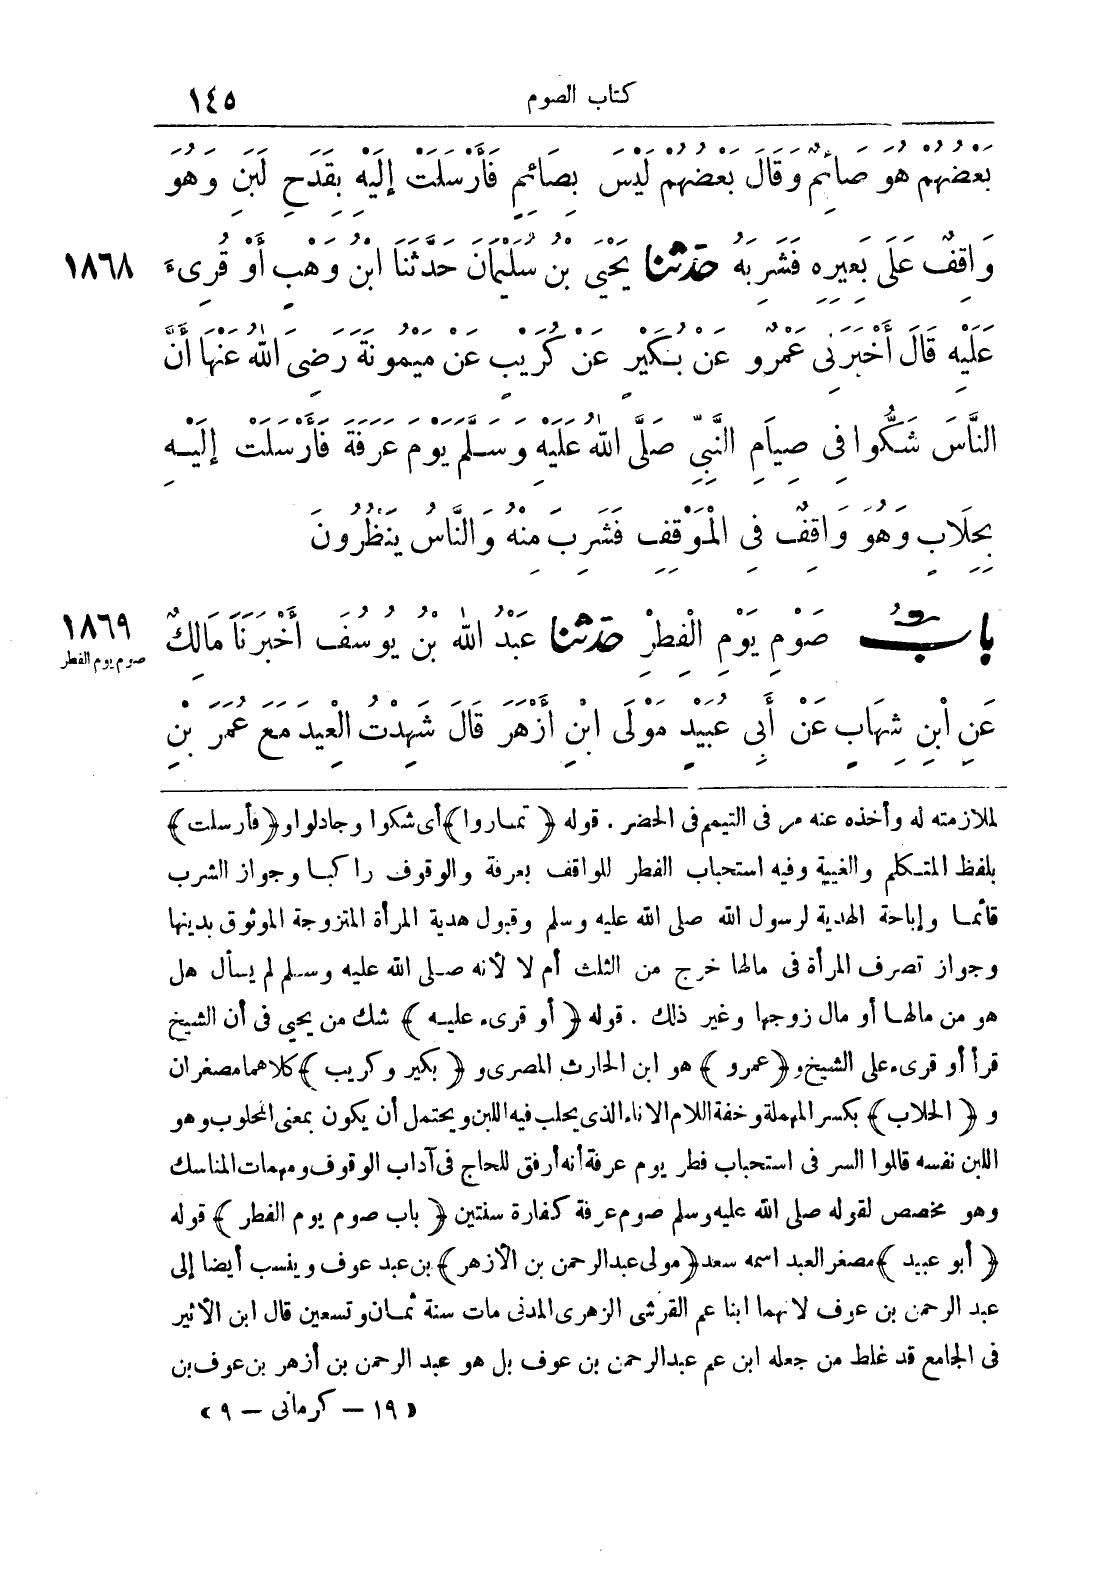 كتاب الصوم ١٤٥
بَعْضُهُمْ هُوَ صَائِمٌ وَقَالَ بَعْضُهُمْ لَيْسَ بِصَائِمٍ فَأَرْسَلَتْ إِلَيْهِ بِقَدَحِ لَبَنٍ وَهُوَ
وَاقِفٌ عَلَى بَعِيرِهِ فَشَرِبَهُ حَدَّثَنَا يَحْيَى بْنُ سُلَيْمَانَ حَدَّثَنَا ابْنُ وَهْبٍ أَوْ قُرِىءَ ١٨٦٨
عَلَيْهِ قَالَ أَخْبَرَنِى عَمْرٌو عَنْ بُكَيْرٍ عَنْ كُرَيْبٍ عَنْ مَيْمُونَةَ رَضِىَ اللّٰهُ عَنْهَا أَنَّ
النَّاسَ شَكُّوا فِى صِيَامِ النَّبِىِّ صَلَّى اللّٰهُ عَلَيْهِ وَسَلَّمَ يَوْمَ عَرَفَةَ فَأَرْسَلَتْ إِلَيْهِ
بِحِلَابٍ وَهُوَ وَاقِفٌ فِى الْمَوْقِفِ فَشَرِبَ مِنْهُ وَالنَّاسُ يَنْظُرُونَ
بَابُ صَوْمِ يَوْمِ الْفِطْرِ حَدَّثَنَا عَبْدُ اللّٰهِ بْنُ يُوسُفَ أَخْبَرَنَا مَالِكٌ ١٨٦٩
صوم يوم الفطر
عَنِ ابْنِ شِهَابٍ عَنْ أَبِى عُبَيْدٍ مَوْلَى ابْنِ أَزْهَرَ قَالَ شَهِدْتُ الْعِيدَ مَعَ عُمَرَ بْنِ
لملازمته له وأخذه عنه مر فى التيمم فى الحضر . قوله ﴿ تماروا﴾ أى شكوا وجادلوا و﴿فأرسلت﴾
بلفظ المتكلم والغيبة وفيه استحباب الفطر للواقف بعرفة والوقوف راكبا وجواز الشرب
قائما وإباحة الهدية لرسول الله صلى الله عليه وسلم وقبول هدية المرأة المتزوجة الموثوق بدينها
وجواز تصرف المرأة فى مالها خرج من الثلث أم لا لأنه صلى الله عليه وسلم لم يسأل هل
هو من مالها أو مال زوجها وغير ذلك . قوله ﴿ أو قرىء عليه ﴾ شك من يحيى فى أن الشيخ
قرأ أو قرىء على الشيخ و﴿عمرو ﴾ هو ابن الحارث المصرى و ﴿ بكير وكريب ﴾ كلاهما مصغران
و ﴿ الحلاب﴾ بكسر المهملة وخفة اللام الاناء الذى يحلب فيه اللبن ويحتمل أن يكون بمعنى المحلوب وهو
اللبن نفسه قالوا السر فى استحباب فطر يوم عرفة أنه أرفق للحاج فى آداب الوقوف ومهمات المناسك
وهو مخصص لقوله صلى الله عليه وسلم صوم عرفة كفارة سنتين ﴿ باب صوم يوم الفطر ﴾ قوله
﴿ أبو عبيد ﴾ مصغر العبد اسمه سعد ﴿مولى عبد الرحمن بن الأزهر﴾ بن عبد عوف وينسب أيضا إلى
عبد الرحمن بن عوف لانهما ابنا عم القرشى الزهرى المدنى مات سنة ثمان وتسعين قال ابن الأثير
فى الجامع قد غلط من جعله ابن عم عبد الرحمن بن عوف بل هو عبد الرحمن بن أزهر بن عوف بن
« ١٩ – كرمانى – ٩ »